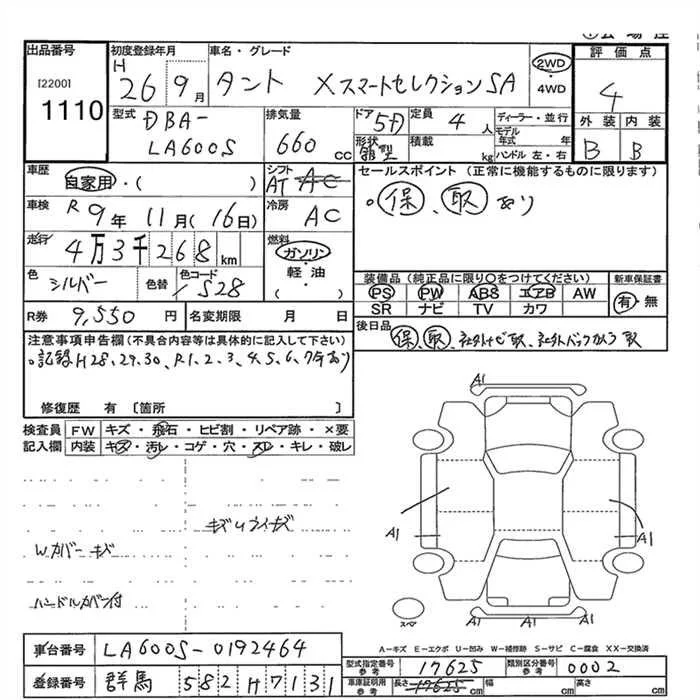 出品番号 初度登録年月 車名・グレード 評価点
[2200] 1110
H 26 9月 タント Xスマートセレクション SA 2WD ・ 4WD 4
型式 DBA-LA600S 排気量 660 cc ドア形状 5D 箱型 定員 4 人 積載 kg
ディーラー・並行 モデル年式 年 ハンドル 左・右
外装 内装
B B
車歴 自家用・( ) シフト AT AC
車検 R 9年 11月(16日) 冷房 AC
走行 4万3千268km 燃料 ガソリン・軽油・( )
色 シルバー 色替 色コード S28
R券 9,550円 名変期限 月 日
セールスポイント(正常に機能するものに限ります)
。保、取あり
装備品(純正品に限り○をつけてください) 新車保証書
PS PW ABS エアB AW 有・無
SR ナビ TV カワ
後日品 保、取、社外ナビ取、社外バックカメラ取
注意事項申告欄(不具合内容等は具体的に記入して下さい)
。記録H28,29,30,R1,2,3,4,5,6,7年あり
修復歴 有 [箇所 ]
検査員 FW キズ・飛石・ヒビ割・リペア跡・×要
記入欄 内装 キズ・汚レ・コゲ・穴・スレ・キレ・破レ
Wカバーキズ
ハンドルカバー付
A1
A1
A1
A1 A1 A1
スペ
A-キズ E-エクボ U-凹み W-補修跡 S-サビ C-腐食 XX-交換済
車台番号 LA600S-0192464
登録番号 群馬 582 H 7131
型式指定番号 参考 17625 類別区分番号 参考 0002
車庫証明用 参考 長さ 17625 cm 幅 cm 高さ cm